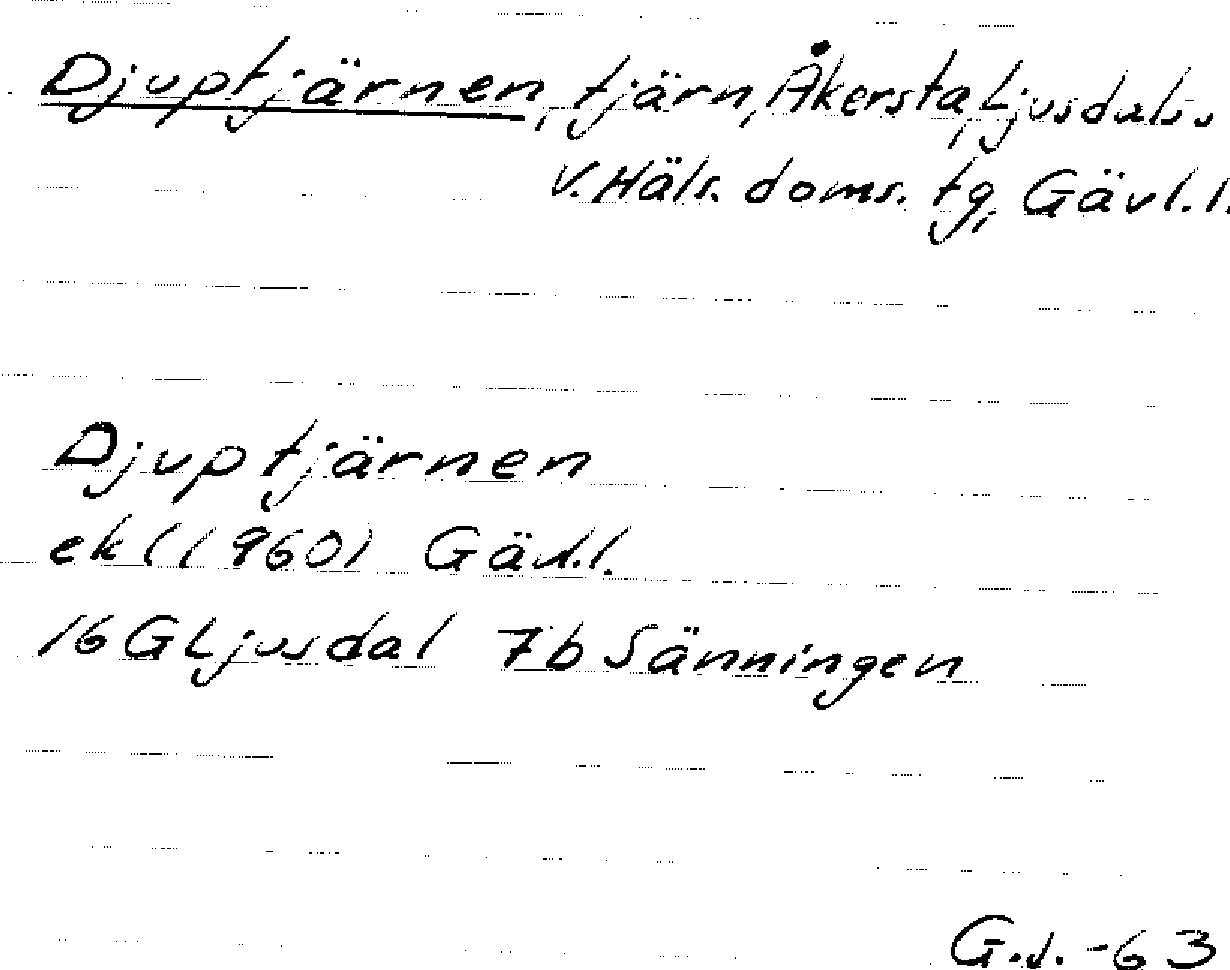 Djuptjärnen, tjärn, Åkersta, Ljusdals s.
V. Häls. doms. tg, Gävl. l.
Djuptjärnen
ek (1960) Gävl. l.
16 G Ljusdal 7b Sänningen
G.J. -63